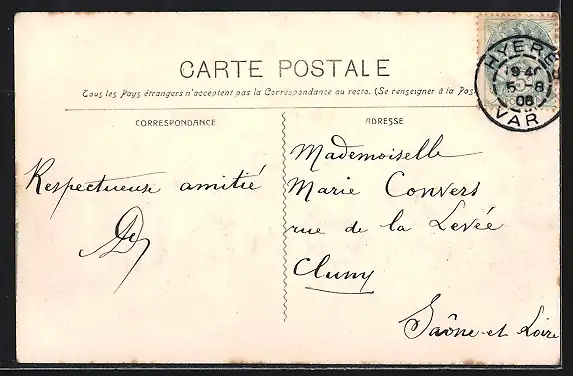 CARTE POSTALE
Tous les Pays étrangers n'acceptent pas la Correspondance au recto. (Se renseigner à la Pos
CORRESPONDANCE
ADRESSE
HYERES
5-8
08
VAR
Respectueuse amitié
Mademoiselle
Marie Convers
rue de la Levée
Cluny
Saône-et-Loire